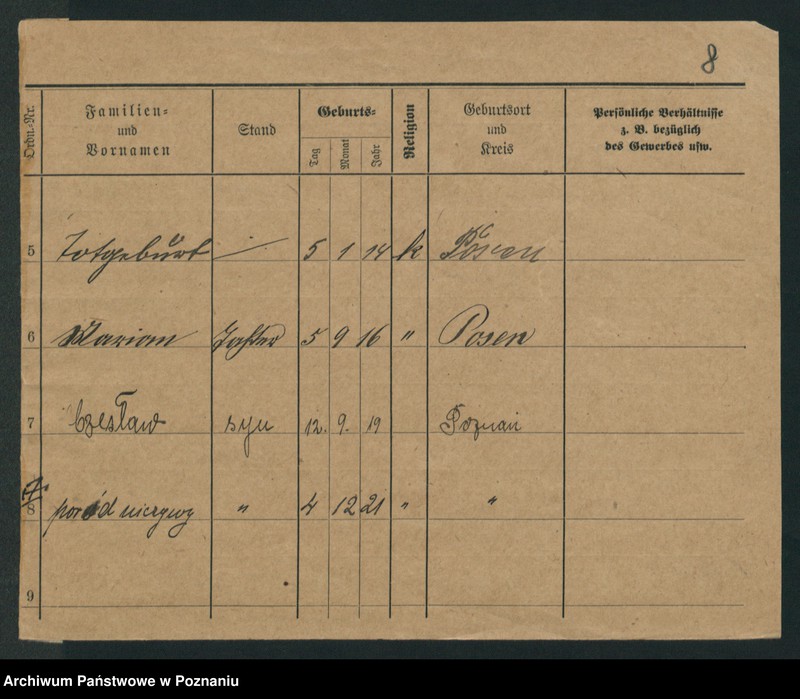 8
Ordn.-Nr.
Familien-
und
Vornamen
Stand
Geburts-
Tag
Monat
Jahr
Religion
Geburtsort
und
Kreis
Persönliche Verhältnisse
z. B. bezüglich
des Gewerbes usw.
5 Totgeburt — 5 1 14 k Posen
6 Marian 5 9 16 " Posen
7 Czesław syn 12. 9. 19 Poznań
8 poród nieżywy " 4 12 21 " "
9
Archiwum Państwowe w Poznaniu